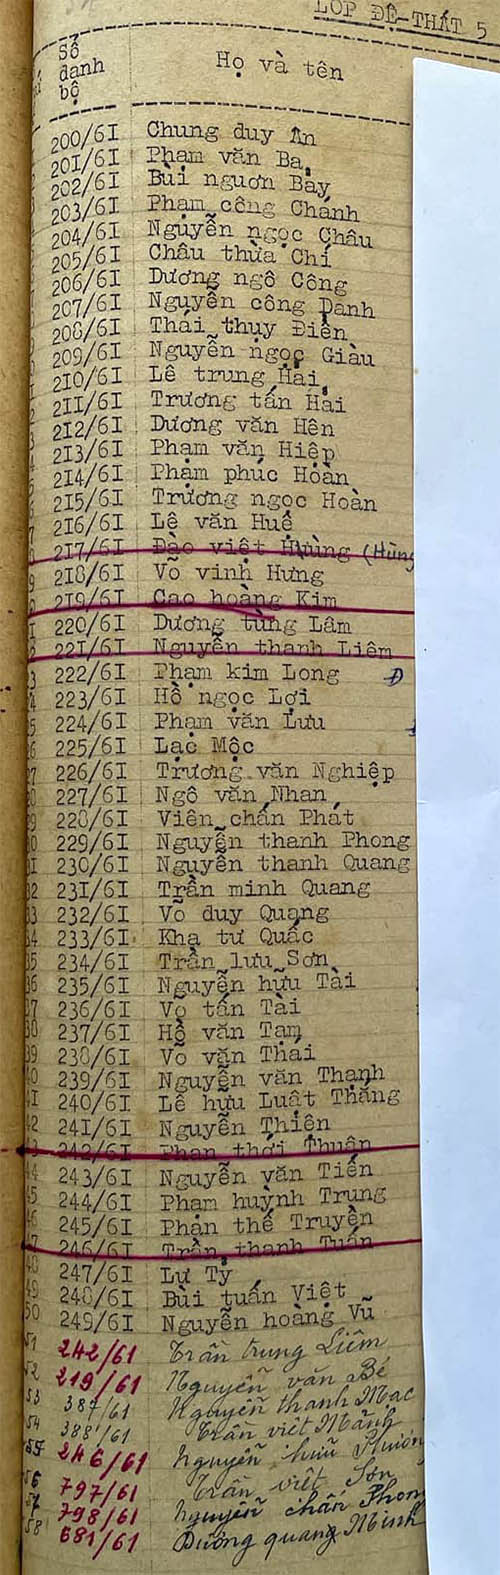 LỚP ĐỆ-THẤT 5
Số danh bộ
Họ và tên
200/6I Chung duy Ân
201/6I Phạm văn Ba
202/6I Bùi nguơn Bảy
203/6I Phạm công Chánh
204/6I Nguyễn ngọc Châu
205/6I Châu thừa Chí
206/6I Dương ngô Công
207/6I Nguyễn công Danh
208/6I Thái thụy Điển
209/6I Nguyễn ngọc Giàu
210/6I Lê trung Hải
211/6I Trương tấn Hải
212/6I Dương văn Hên
213/6I Phạm văn Hiệp
214/6I Phạm phúc Hoàn
215/6I Trương ngọc Hoàn
216/6I Lê văn Huệ
217/6I Đào việt Hùng (Hùng
218/6I Võ vinh Hưng
219/6I Cao hoàng Kim
220/6I Dương tùng Lâm
221/6I Nguyễn thanh Liêm
222/6I Phạm kim Long Đ
223/6I Hồ ngọc Lợi
224/6I Phạm văn Lưu
225/6I Lạc Mộc
226/6I Trương văn Nghiệp
227/6I Ngô văn Nhan
228/6I Viên chấn Phát
229/6I Nguyễn thanh Phong
230/6I Nguyễn thanh Quang
231/6I Trần minh Quang
232/6I Võ duy Quang
233/6I Kha tư Quấc
234/6I Trần lưu Sơn
235/6I Nguyễn hữu Tài
236/6I Võ tấn Tài
237/6I Hồ văn Tam
238/6I Võ văn Thái
239/6I Nguyễn văn Thạnh
240/6I Lê hữu Luật Thắng
241/6I Nguyễn Thiện
242/6I Phan thới Thuận
243/6I Nguyễn văn Tiến
244/6I Phạm huỳnh Trung
245/6I Phan thế Truyền
246/6I Trần thanh Tuấn
247/6I Lự Tỷ
248/6I Bùi tuấn Việt
249/6I Nguyễn hoàng Vũ
51 242/61 Trần trung Liêm
52 219/61 Nguyễn văn Bé
53 387/61 Nguyễn thanh Mac
54 388/61 Trần viết Mảnh
55 246/61 Nguyễn hữu
56 797/61 Trần viết Sơn
57 798/61 Nguyễn chấn Phong
58 681/61 Dương quang Minh